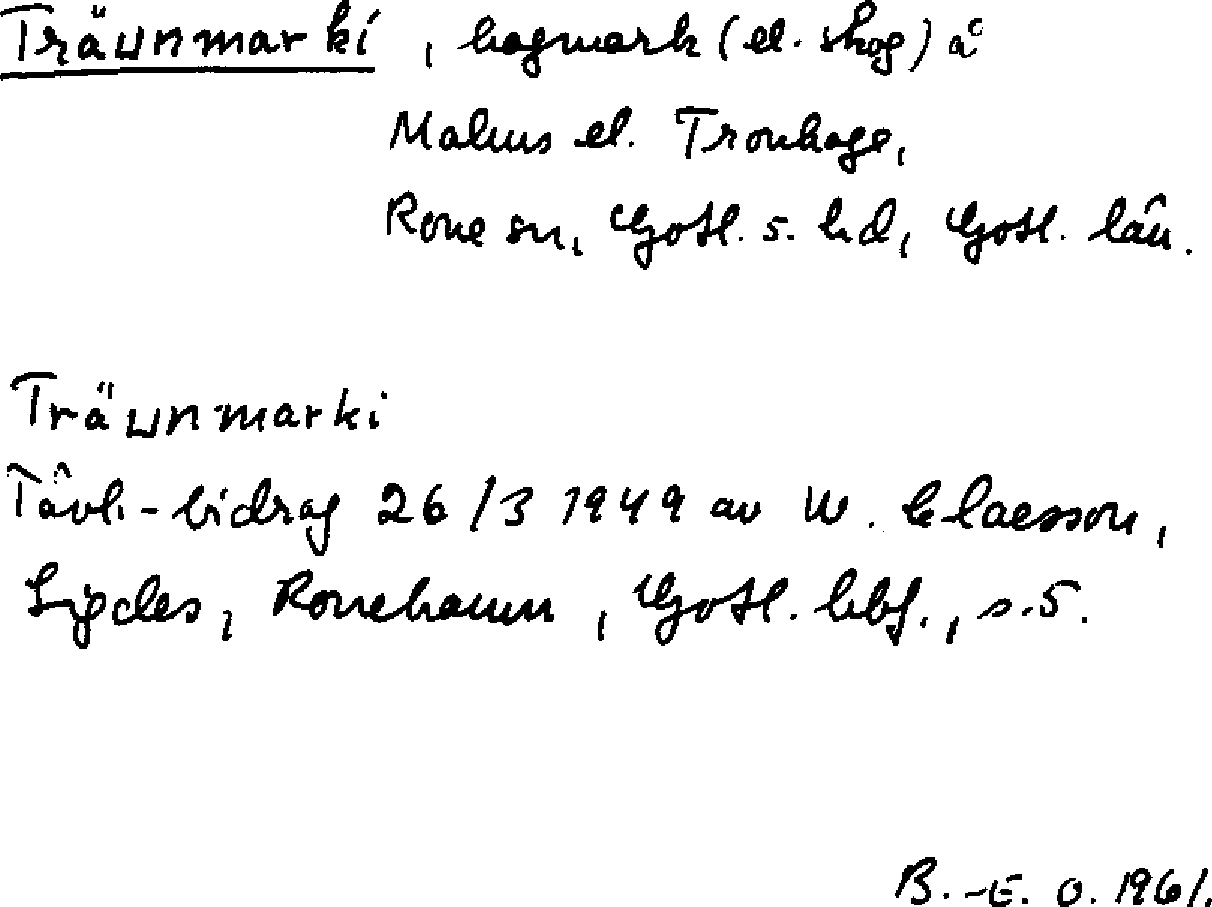 Träunmarki, hagmark (el. skog) å
Malms el. Tronhage,
Rone sn, Gotl. s. hd, Gotl. län.
Träunmarki
Tävl.-bidrag 26/3 1949 av W. Claesson,
Sigdes, Ronehamn, Gotl. lbf., s. 5.
B.-E. O. 1961.